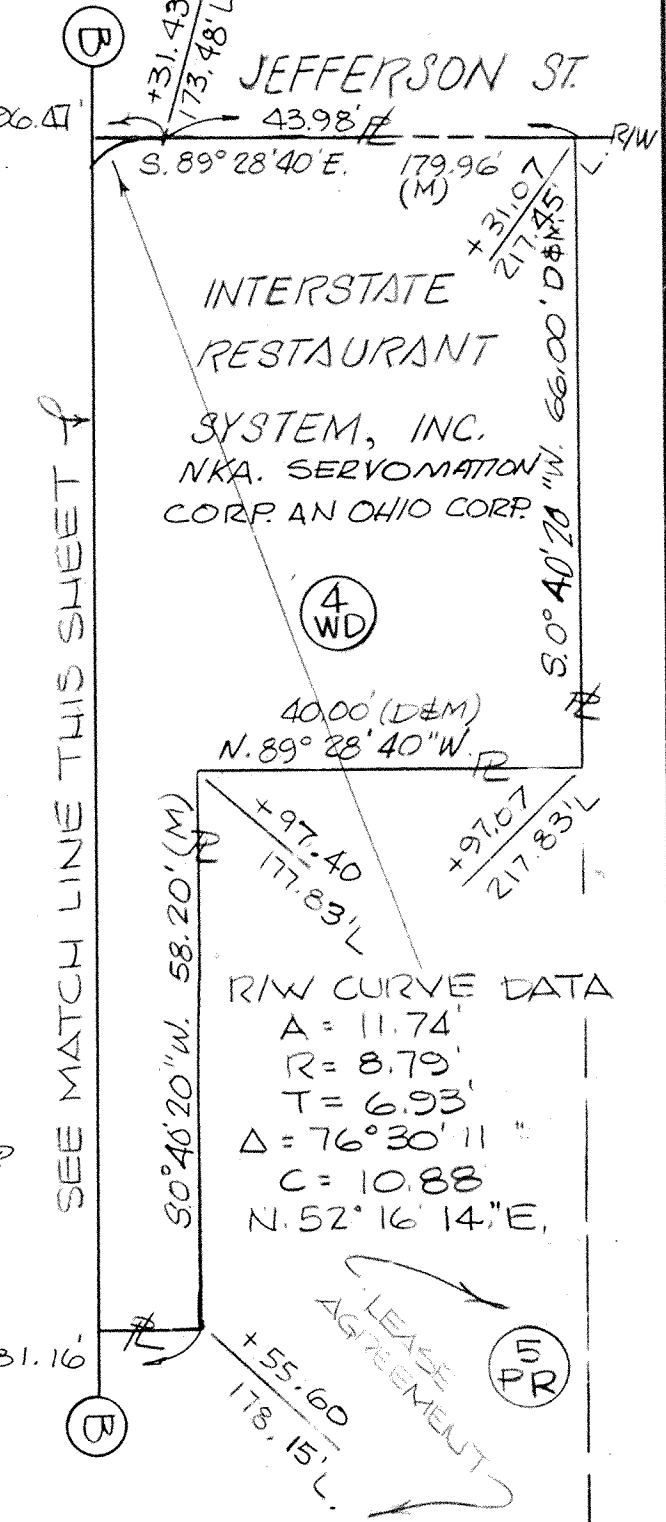 B
+31.43
173.48'L
JEFFERSON ST.
06.47'
43.98' PL
R/W
S. 89° 28' 40" E. 179.96'
(M)
+31.07
217.45' L
S. 0° 40' 20" W. 66.00' D&M.
INTERSTATE
RESTAURANT
SYSTEM, INC.
NKA. SERVOMATION
CORP. AN OHIO CORP.
4
WD
SEE MATCH LINE THIS SHEET
PL
40.00' (D&M)
N. 89° 28' 40" W. PL
+97.40
177.83' L
+97.07
217.83' L
S. 0° 40' 20" W. 58.20' (M)
PL
R/W CURVE DATA
A = 11.74'
R = 8.79'
T = 6.93'
Δ = 76° 30' 11"
C = 10.88
N. 52° 16' 14" E.
LEASE
AGREEMENT
5
PR
PL
31.16'
+55.60
178.15' L.
B